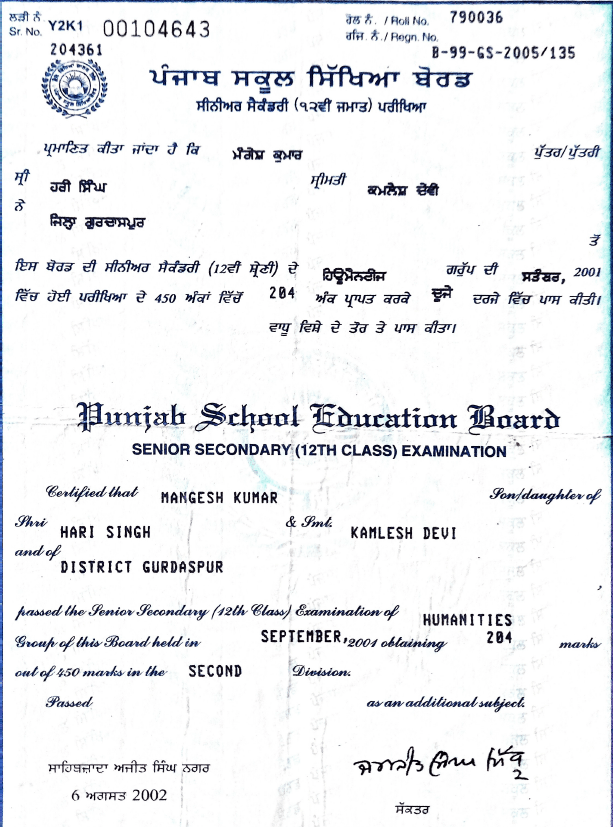 ਲੜੀ ਨੰ
Sr. No. Y2K1 00104643
ਰੋਲ ਨੰ. / Roll No. 790036
ਰਜਿ. ਨੰ. / Regn. No.
204361
B-99-GS-2005/135
ਪੰਜਾਬ ਸਕੂਲ ਸਿੱਖਿਆ ਬੋਰਡ
ਸੀਨੀਅਰ ਸੈਕੰਡਰੀ (੧੨ਵੀਂ ਜਮਾਤ) ਪਰੀਖਿਆ
ਪ੍ਰਮਾਣਿਤ ਕੀਤਾ ਜਾਂਦਾ ਹੈ ਕਿ ਮੰਗੇਸ਼ ਕੁਮਾਰ ਪੁੱਤਰ/ਪੁੱਤਰੀ
ਸ੍ਰੀ ਹਰੀ ਸਿੰਘ ਸ੍ਰੀਮਤੀ ਕਮਲੇਸ਼ ਦੇਵੀ
ਨੇ
ਜ਼ਿਲ੍ਹਾ ਗੁਰਦਾਸਪੁਰ
ਤੋਂ
ਇਸ ਬੋਰਡ ਦੀ ਸੀਨੀਅਰ ਸੈਕੰਡਰੀ (12ਵੀਂ ਸ਼੍ਰੇਣੀ) ਦੇ ਹਿਊਮੈਨਟੀਜ਼ ਗਰੁੱਪ ਦੀ ਸਤੰਬਰ, 2001
ਵਿੱਚ ਹੋਈ ਪਰੀਖਿਆ ਦੇ 450 ਅੰਕਾਂ ਵਿੱਚੋਂ 204 ਅੰਕ ਪ੍ਰਾਪਤ ਕਰਕੇ ਦੂਜੇ ਦਰਜੇ ਵਿੱਚ ਪਾਸ ਕੀਤੀ।
ਵਾਧੂ ਵਿਸ਼ੇ ਦੇ ਤੌਰ ਤੇ ਪਾਸ ਕੀਤਾ।
Punjab School Education Board
SENIOR SECONDARY (12TH CLASS) EXAMINATION
Certified that MANGESH KUMAR Son/daughter of
Shri HARI SINGH & Smt. KAMLESH DEVI
and of
DISTRICT GURDASPUR
passed the Senior Secondary (12th Class) Examination of HUMANITIES
Group of this Board held in SEPTEMBER, 2001 obtaining 204 marks
out of 450 marks in the SECOND Division.
Passed as an additional subject.
ਸਾਹਿਬਜ਼ਾਦਾ ਅਜੀਤ ਸਿੰਘ ਨਗਰ
6 ਅਗਸਤ 2002
ਸਕੱਤਰ